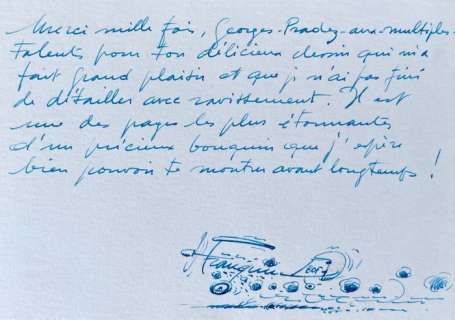 Merci mille fois, Georges-Pradez-aux-multiples-
talents pour ton délicieux dessin qui m'a
fait grand plaisir et que je n'ai pas fini
de détailler avec ravissement. Il est
une des pages les plus étonnantes
d'un précieux bouquin que j'espère
bien pouvoir te montrer avant longtemps !
Franquin